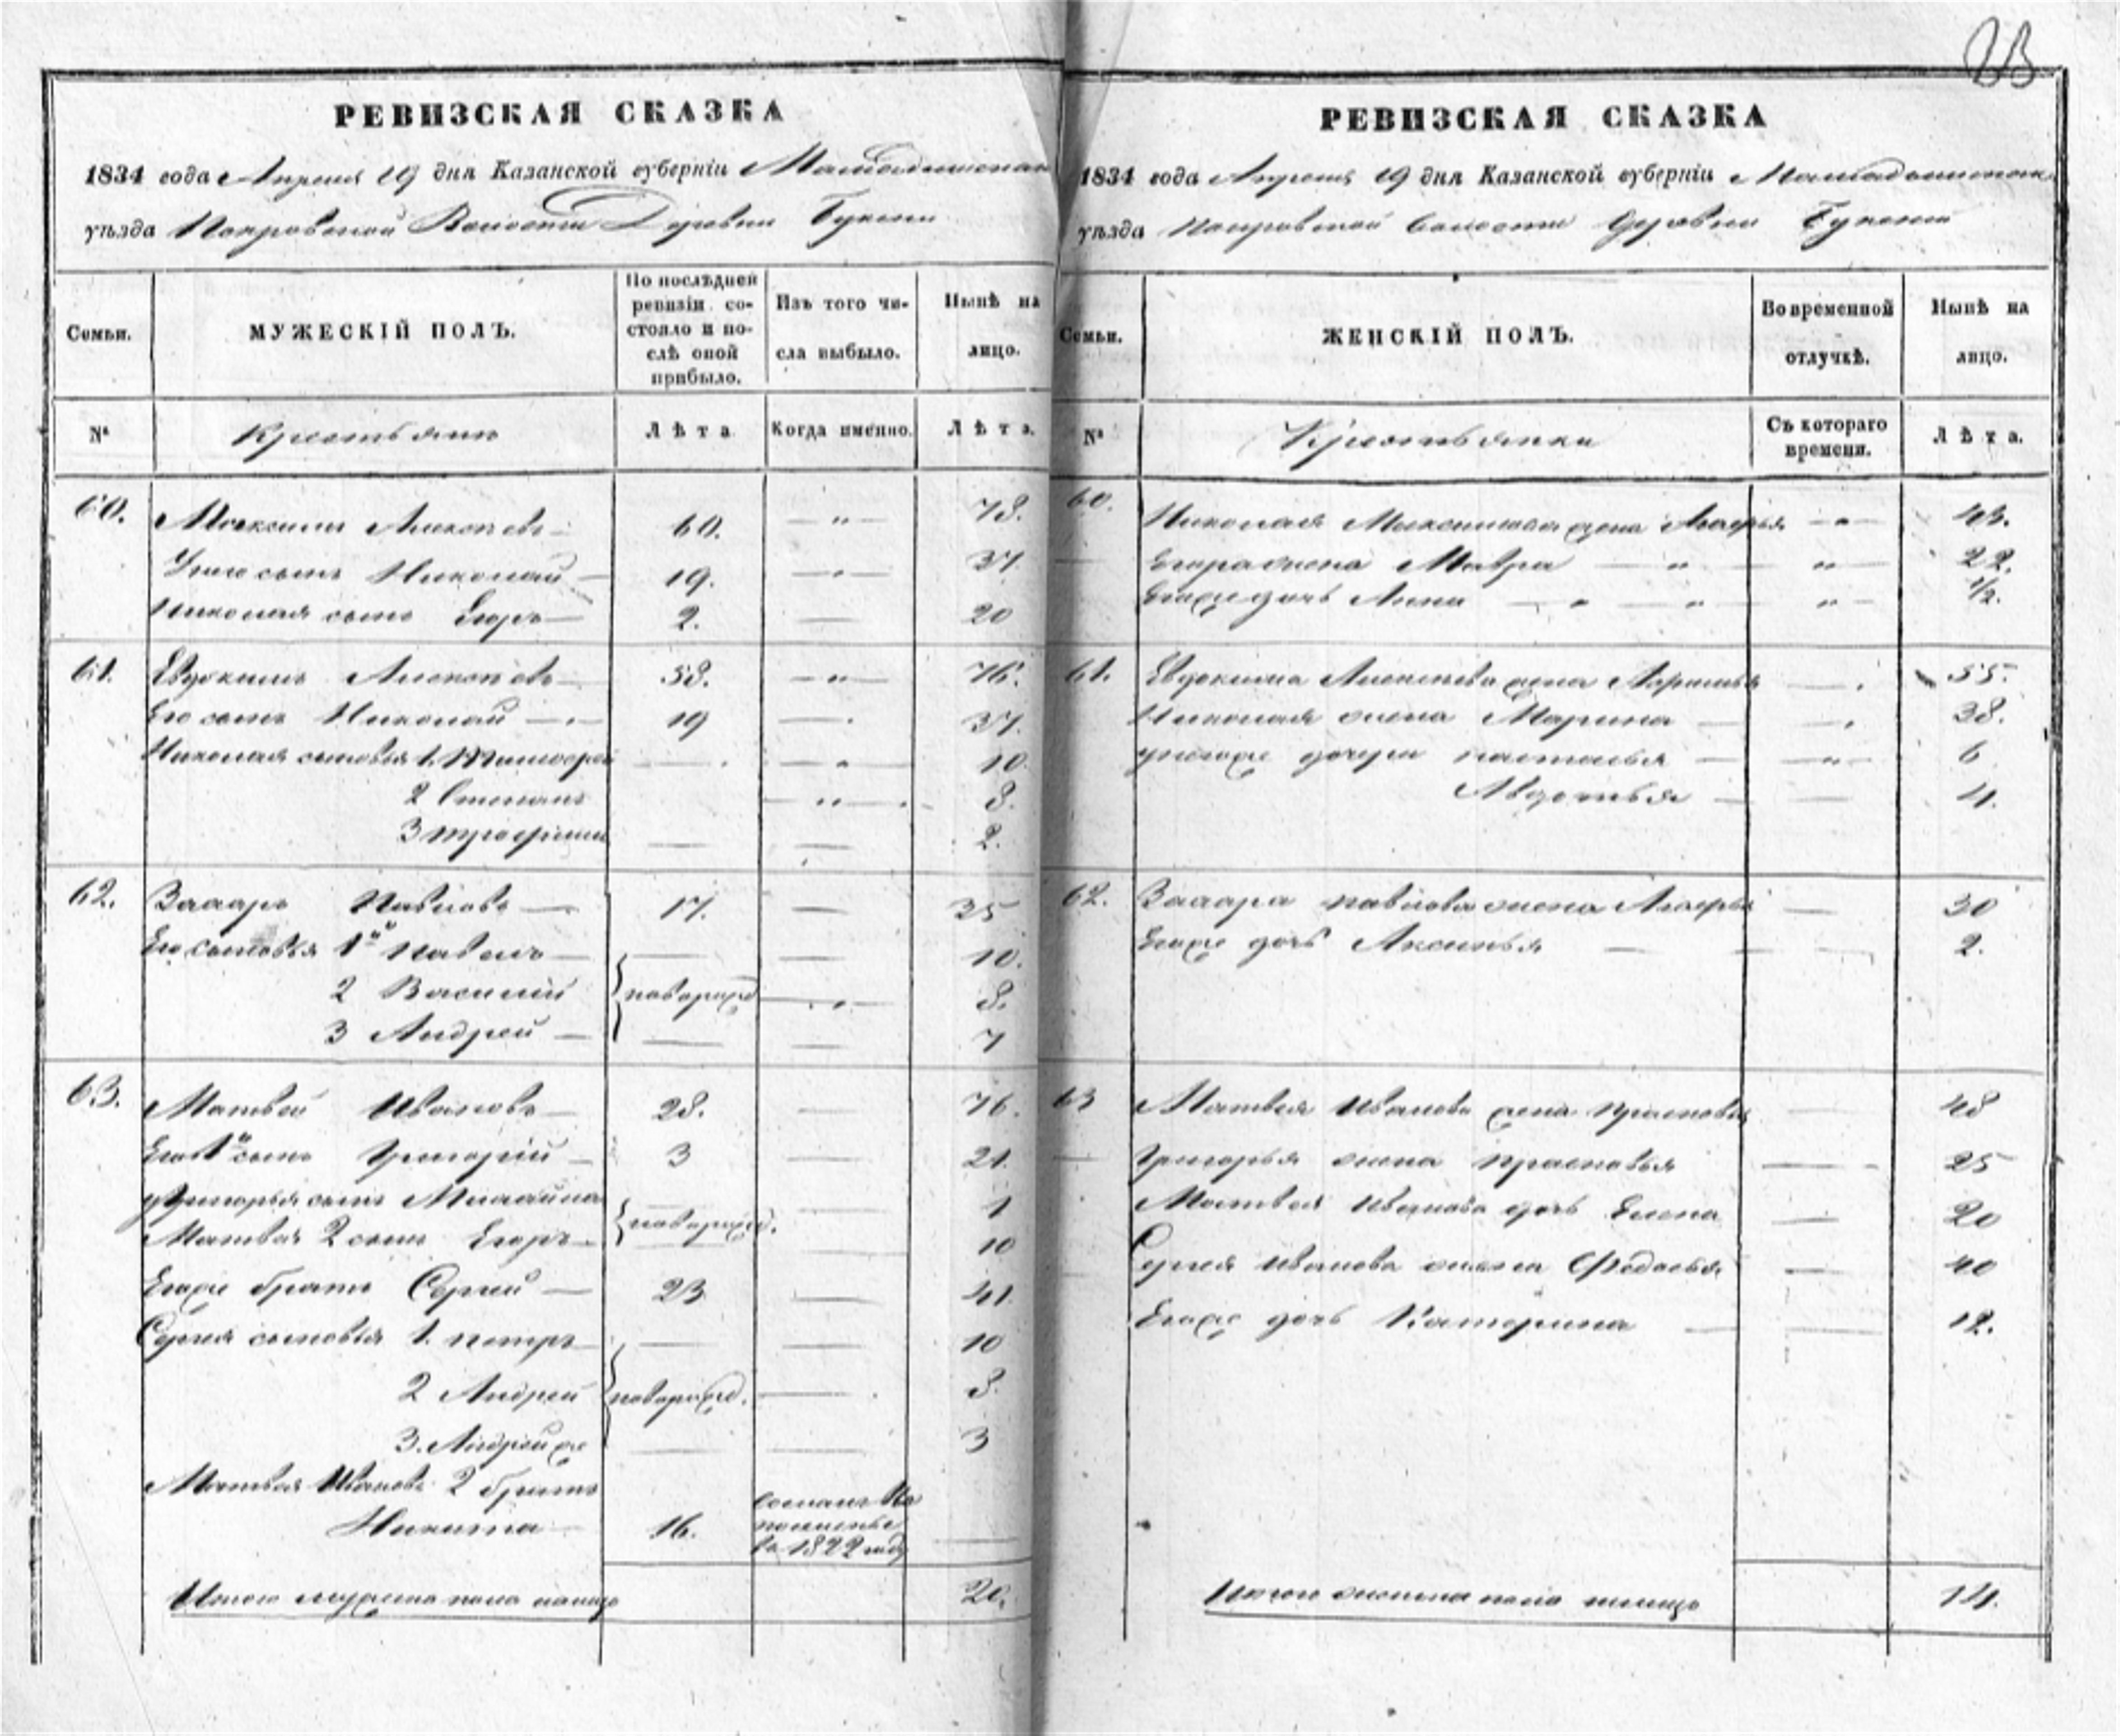 РЕВИЗСКАЯ СКАЗКА
1834 года Апреля 19 дня Казанской губерніи
уѣзда Покровской Волости Деревни
Семьи.
МУЖЕСКІЙ ПОЛЪ.
По послѣдней ревизіи состояло и послѣ оной прибыло.
Изъ того числа выбыло.
Нынѣ на лицо.
№
Крестьянъ
Лѣта
Когда именно.
Лѣта.
60. Максимъ Алексѣевъ 60. 78.
У него сынъ Николай 19. 37
Николая сынъ Егоръ 2. 20
61. Евдокимъ Алексѣевъ 58. 76.
Его сынъ Николай 19 37.
Николая сыновья 1. Тимофей 10.
2 Степанъ 8.
3 Трофимъ 2.
62. Захаръ Павловъ 17. 35
Его сыновья 1й Павелъ 10.
2 Василий новорожд 8.
3 Андрей 7
63. Матвей Ивановъ 28. 76.
Его 1й сынъ Григорій 3 21.
у Григорья сынъ Михайла 1
новорожд.
Матвея 2 сынъ Егоръ 10
Егоже братъ Сергей 23 41.
Сергея сыновья 1. Петръ 10
2 Андрей новорожд. 8.
3. Андрей же 3
Матвея Иванова 2 братъ
Никита 16. сосланъ на поселенье въ 1822 году
Итого мужеска пола налицо 20.
23
РЕВИЗСКАЯ СКАЗКА
1834 года Апреля 19 дня Казанской губерніи
уѣзда Покровской волости деревни
Семьи.
ЖЕНСКІЙ ПОЛЪ.
Во временной отлучкѣ.
Нынѣ на лицо.
№
Крестьянки
Съ котораго времени.
Лѣта.
60. Николая Максимова жена 43.
Егора жена Мавра 22.
Егоже дочь Анна 1/2.
61. Евдокима Алексѣева жена 55.
Николая жена Марина 38.
у негоже дочери Настасья 6
Авдотья 4.
62. Захара Павлова жена 30
Егоже дочь Аксинья 2.
63 Матвея Иванова жена Прасковья 48
Григорья жена Прасковья 25
Матвея Иванова дочь Елена 20
Сергея Иванова жена Федосья 40
Егоже дочь Катерина 12.
Итого женска пола налицо 14.